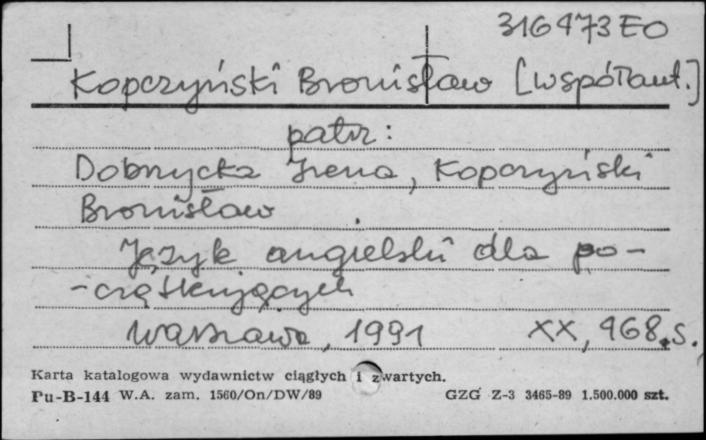 316473 EO
Kopczyński Bronisław [współaut.]
patrz:
Dobrzycka Irena, Kopczyński
Bronisław
Język angielski dla po-
-czątkujących
Warszawa, 1991 XX, 468 s.
Karta katalogowa wydawnictw ciągłych i zwartych.
Pu-B-144 W.A. zam. 1560/On/DW/89 GZG Z-3 3465-89 1.500.000 szt.